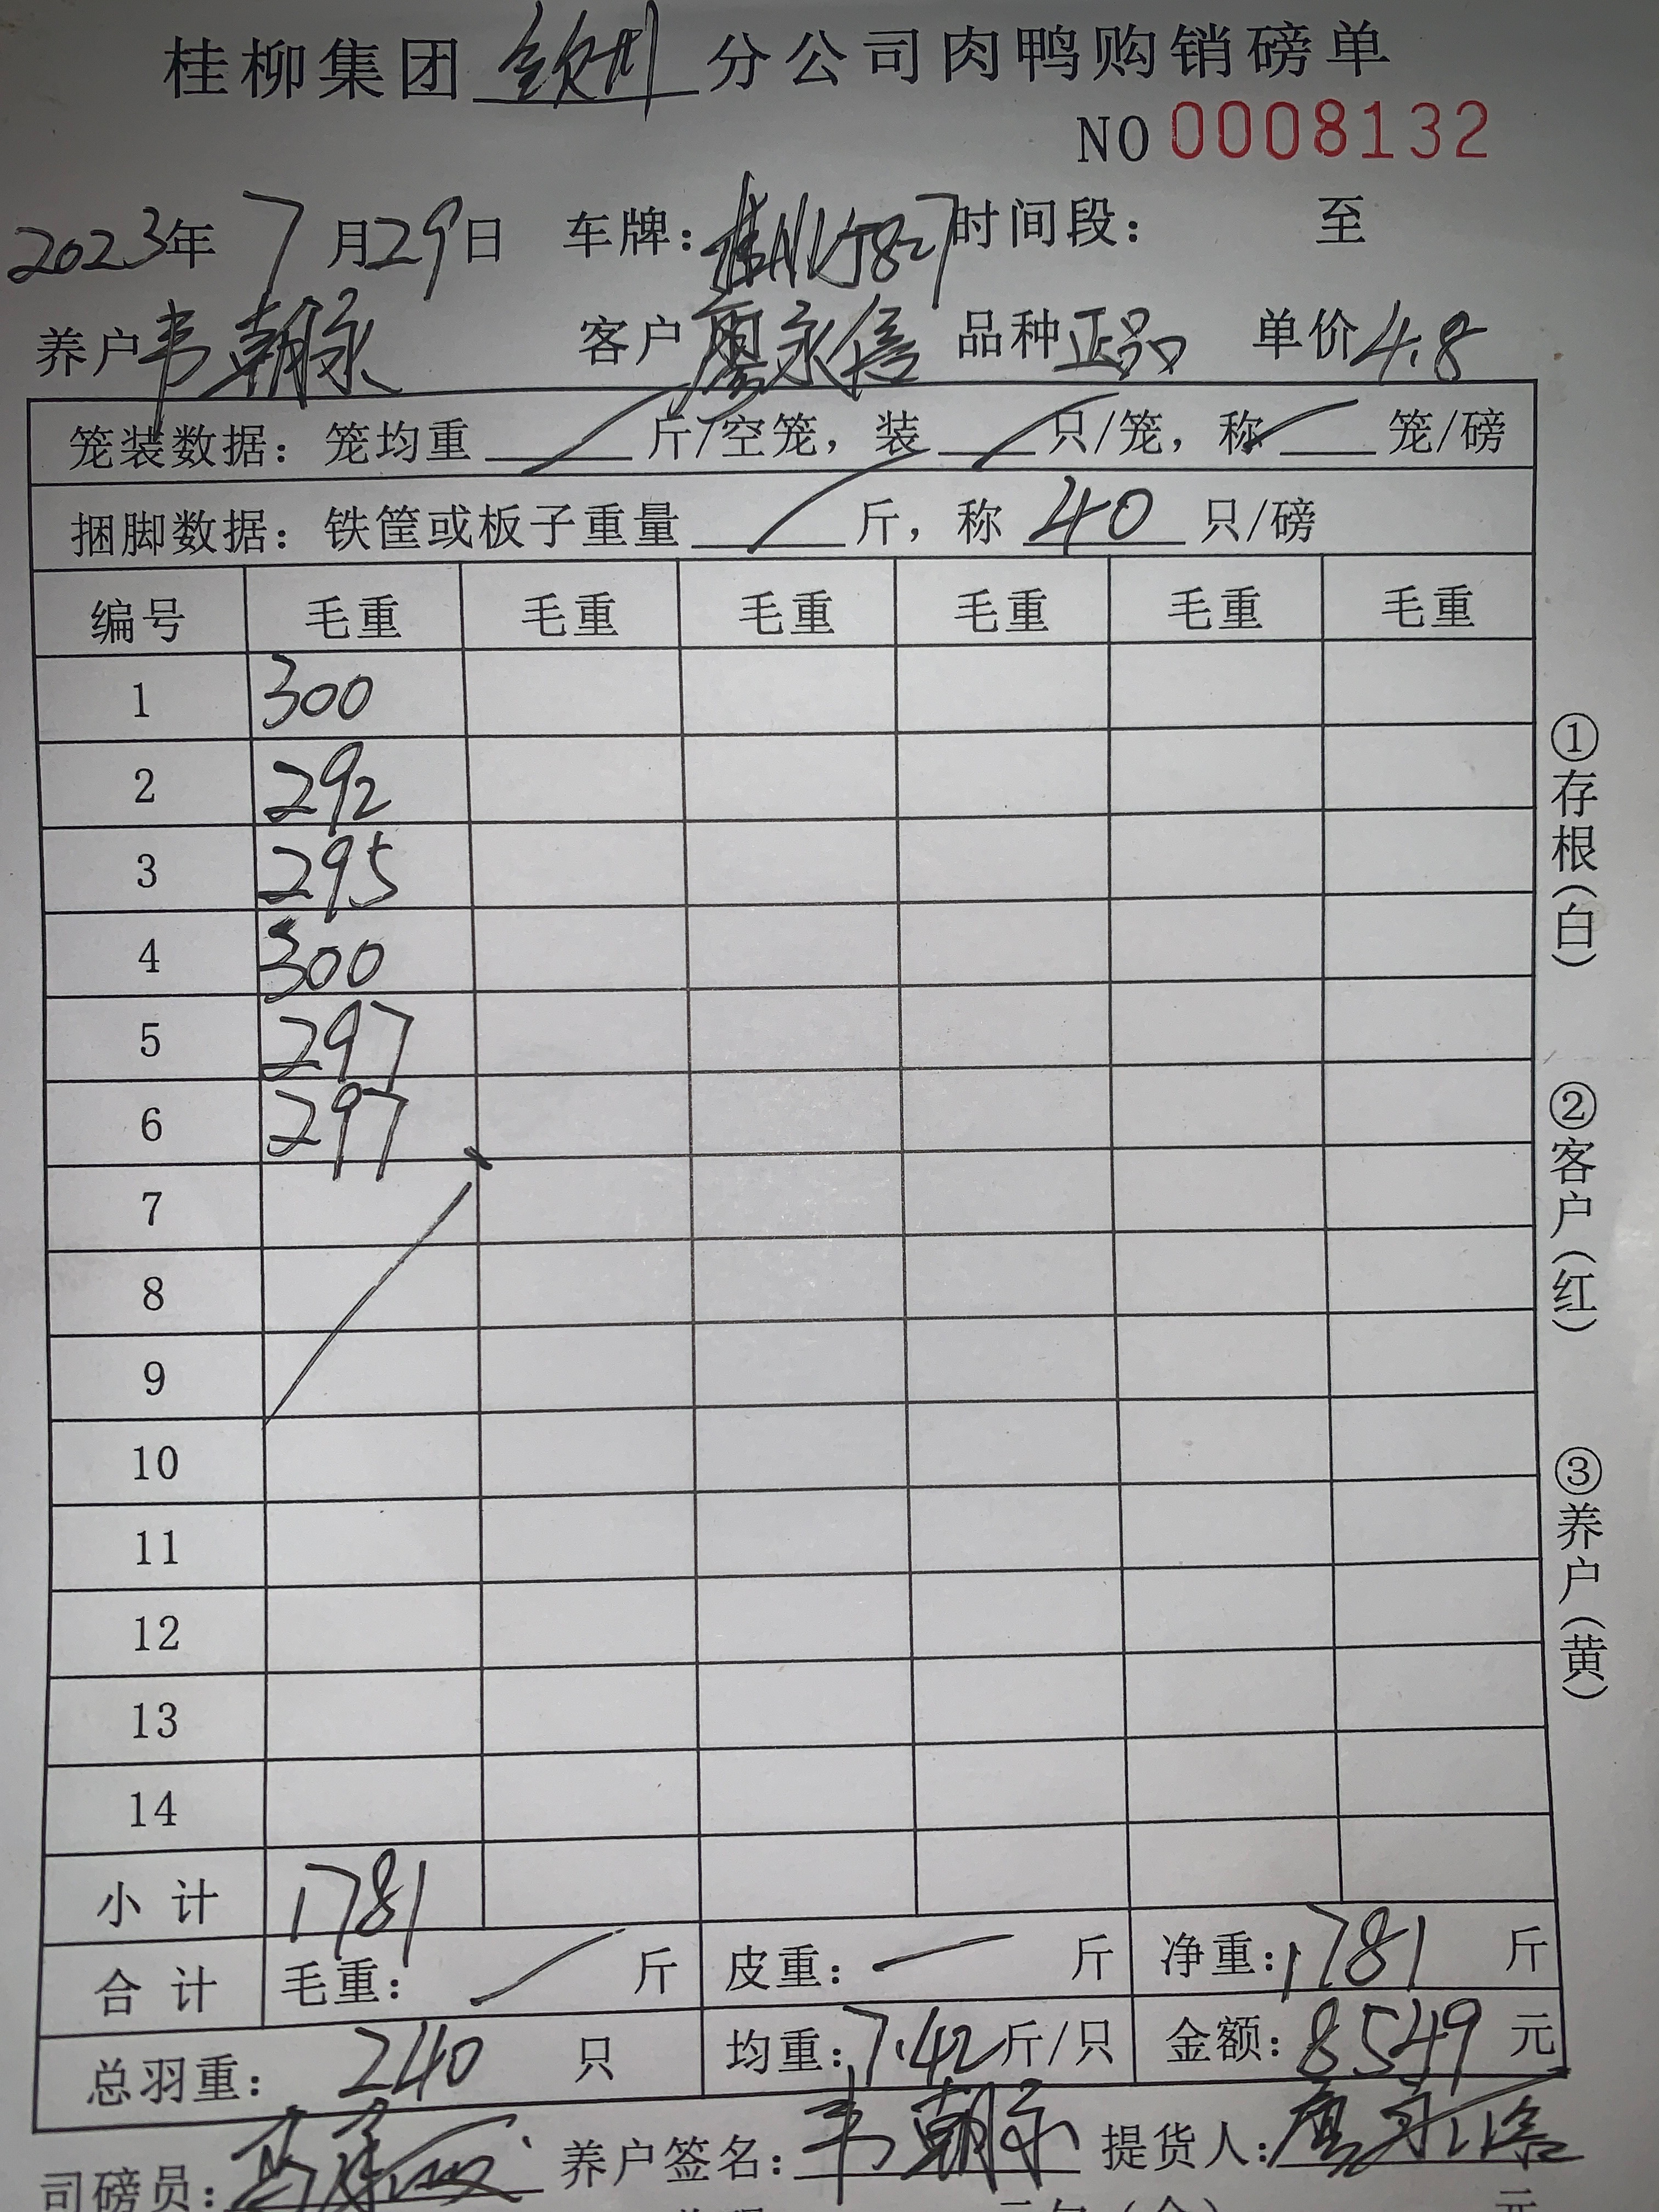 桂柳集团 钦州 分公司肉鸭购销磅单
NO 0008132
2023年 7月29日 车牌: 时间段: 至
养户 韦朝永 客户 廖永信 品种 正品 单价 4.8
笼装数据: 笼均重 斤/空笼, 装 只/笼, 称 笼/磅
捆脚数据: 铁筐或板子重量 斤, 称 40 只/磅
编号 毛重 毛重 毛重 毛重 毛重 毛重
1 300
2 292
3 295
4 300
5 297
6 297
7
8
9
10
11
12
13
14
小计 1781
合计 毛重: 斤 皮重: 斤 净重: 1781 斤
总羽重: 240 只 均重: 7.42 斤/只 金额: 8549 元
司磅员: 养户签名: 韦朝永 提货人: 廖永信
①存根(白)
②客户(红)
③养户(黄)